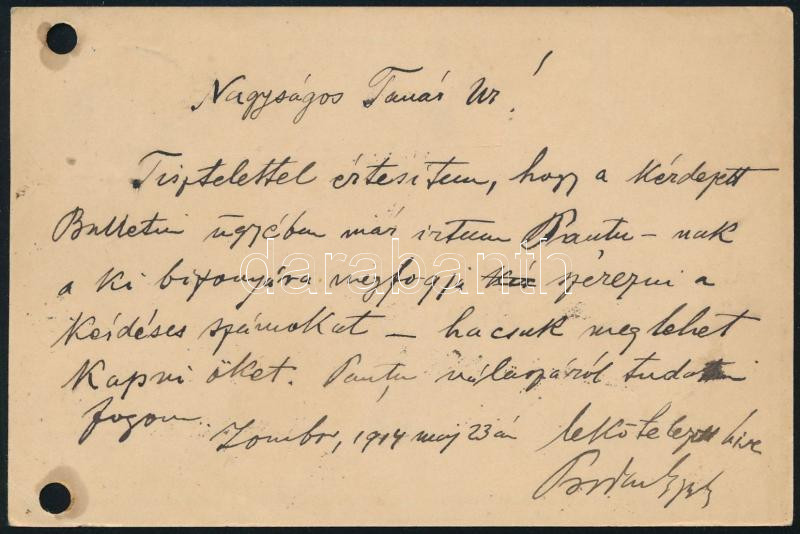 Nagyságos Tanár Ur!
Tisztelettel értesitem, hogy a kérdezett
Bulletin ügyében már irtam Pantu-nak
a ki bizonyára megfogja szerezni a
kérdéses számokat – hacsak meg lehet
kapni őket. Pantu válaszáról tudatni
fogom.
Zombor, 1914 maj 23án lekötelezett hive
darabanth